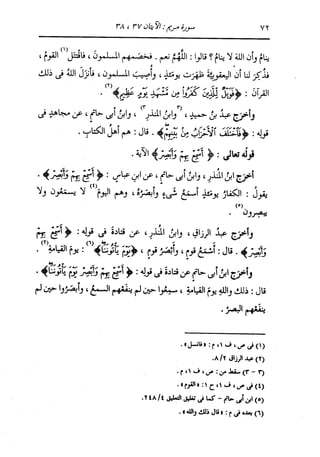 ٧٢ سورة مريم : الآيتان ٣٧ ، ٣٨
ينام وأن الله لا ينام ؟ قالوا : اللَّهُمَّ نعم . فخصمهم المسلمون ، فاقتتل(١) القوم ،
فذُكِر لنا أن اليعقوبية ظهرت يومئذ ، وأُصيب المسلمون ، فأنزل الله فى ذلك
القرآن : ﴿ فَوَيْلٌ لِّلَّذِينَ كَفَرُوا مِن مَّشْهَدِ يَوْمٍ عَظِيمٍ ﴾(٢) .
وأخرج عبد بن حميد ، (٣وابن المنذر٣) ، وابن أبى حاتم ، عن مجاهد فى
قوله : ﴿ فَاخْتَلَفَ الْأَحْزَابُ مِن بَيْنِهِمْ ﴾ . قال : هم أهل الكتاب .
قوله تعالى : ﴿ أَسْمِعْ بِهِمْ وَأَبْصِرْ ﴾ الآية .
أخرج ابن المنذر ، وابن أبى حاتم ، عن ابن عباس : ﴿ أَسْمِعْ بِهِمْ وَأَبْصِرْ ﴾ .
يقول : الكفار يومئذ أسمع شىء وأبصره ، وهم اليوم(٤) لا يسمعون ولا
يبصرون(٥) .
وأخرج عبد الرزاق ، وابن المنذر ، عن قتادة فى قوله : ﴿ أَسْمِعْ بِهِمْ
وَأَبْصِرْ ﴾ . قال : أسمع قوم ، وأبصر قوم ، ﴿ يَوْمَ يَأْتُونَنَا ﴾(٦) : يوم القيامة(٢) .
وأخرج ابن أبى حاتم عن قتادة فى قوله : ﴿ أَسْمِعْ بِهِمْ وَأَبْصِرْ يَوْمَ يَأْتُونَنَا ﴾ .
قال : ذلك والله يوم القيامة ، سمعوا حين لم ينفعهم السمع ، وأبصروا حين لم
ينفعهم البصر .
(١) فى ص ، ف ١ ، م : « فانسل » .
(٢) عبد الرزاق ٨/٢ .
(٣ - ٣) سقط من : ص ، ف ١ ، م .
(٤) فى ص ، ف ١ ، ح ١ : « القوم » .
(٥) ابن أبى حاتم - كما فى تغليق التعليق ٢٤٨/٤ .
(٦) بعده فى م : « قال ذلك والله » .